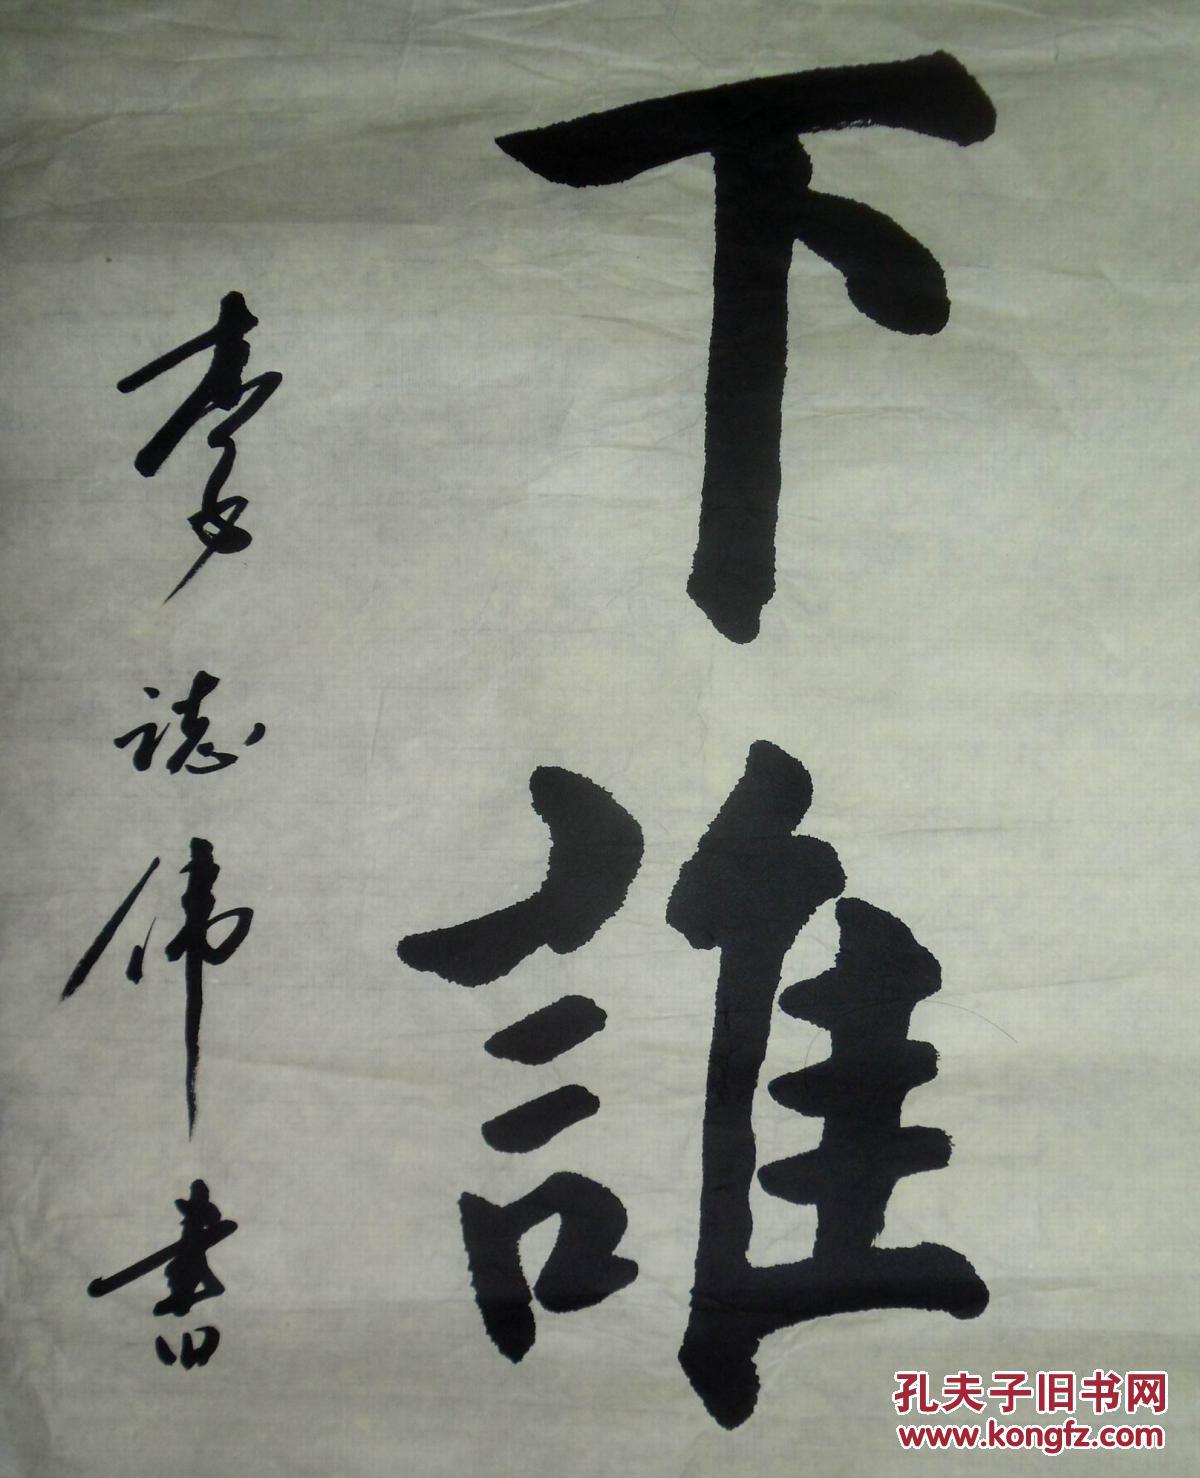 下誰
李誌偉書
孔夫子旧书网
www.kongfz.com